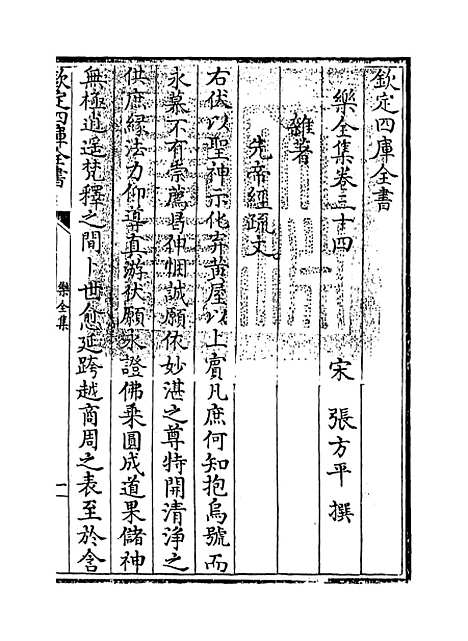 欽定四庫全書
樂全集卷三十四
宋 張方平 撰
雜著
先帝經疏文
右伏以聖神示化弃黄屋以上賓凡庶何知抱烏號而
永慕不有崇薦曷伸悃誠願依妙湛之尊特開清浄之
供庶縁法力仰導真游伏願永證佛乘圓成道果儲神
無極逍遥梵釋之間卜世愈延跨越商周之表至於含
欽定四庫全書
樂全集
一